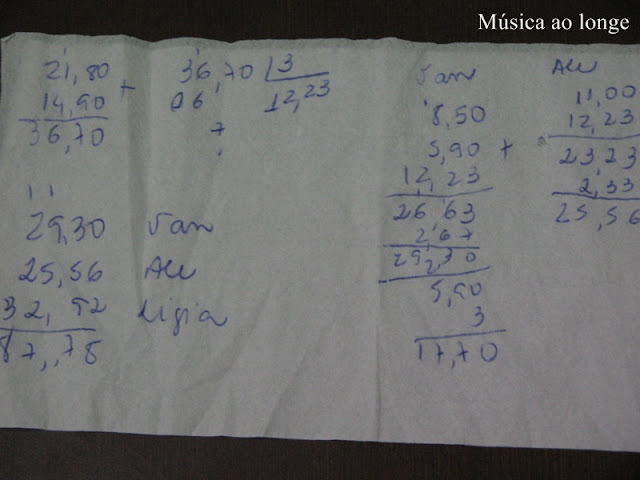 Música ao longe
21,80 +
14,90
36,70
36,70 | 3
06 12,23
7
29,30 Van
25,56 Ale
32,92 Ligia
87,78
Van
8,50
5,90 +
12,23
26,63
2,67
29,30
5,90
3
17,70
Ale
11,00
12,23
23,23
2,33
25,56